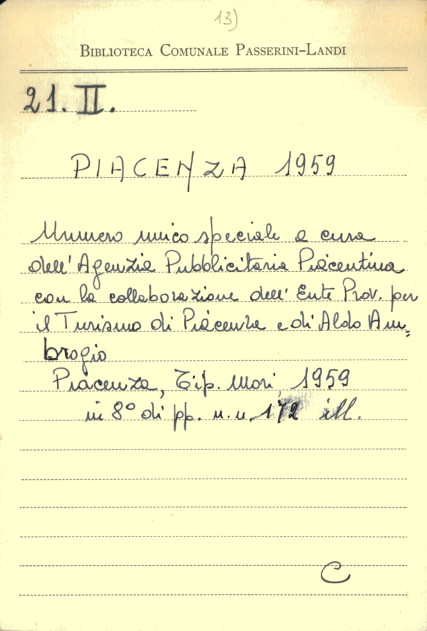 13)
BIBLIOTECA COMUNALE PASSERINI-LANDI
21. II.
PIACENZA 1959
Numero unico speciale a cura
dell'Agenzia Pubblicitaria Piacentina
con la collaborazione dell'Ente Prov. per
il Turismo di Piacenza e di Aldo Am=
brogio
Piacenza, Tip. Mori, 1959
in 8° di pp. n. n. 172 ill.
C